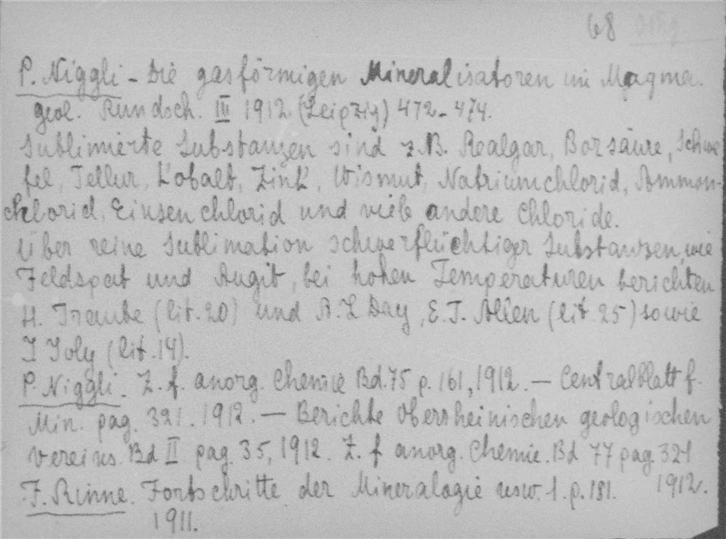 68
P. Niggli - Die gasförmigen Mineralisatoren im Magma.
geol. Rundsch. III 1912 (Leipzig) 472-474.
Sublimierte Substanzen sind z.B. Realgar, Borsäure, Schwe
fel, Tellur, Kobalt, Zink, Wismut, Natriumchlorid, Ammon-
chlorid, Eisenchlorid und viele andere Chloride.
Über reine Sublimation schwerflüchtiger Substanzen, wie
Feldspat und Augit, bei hohen Temperaturen berichten
H. Traube (lit. 20) und A. L Day, E. T. Allen (lit. 25) sowie
J Joly (lit. 14).
P. Niggli. Z. f. anorg. Chemie Bd. 75 p. 161, 1912. — Centralblatt f.
Min. pag. 321. 1912. — Berichte Oberrheinischen geologischen
Vereins. Bd II pag. 35, 1912. Z. f anorg. Chemie. Bd 77 pag 321
1912.
F. Rinne. Fortschritte der Mineralogie usw. 1. p. 181.
1911.